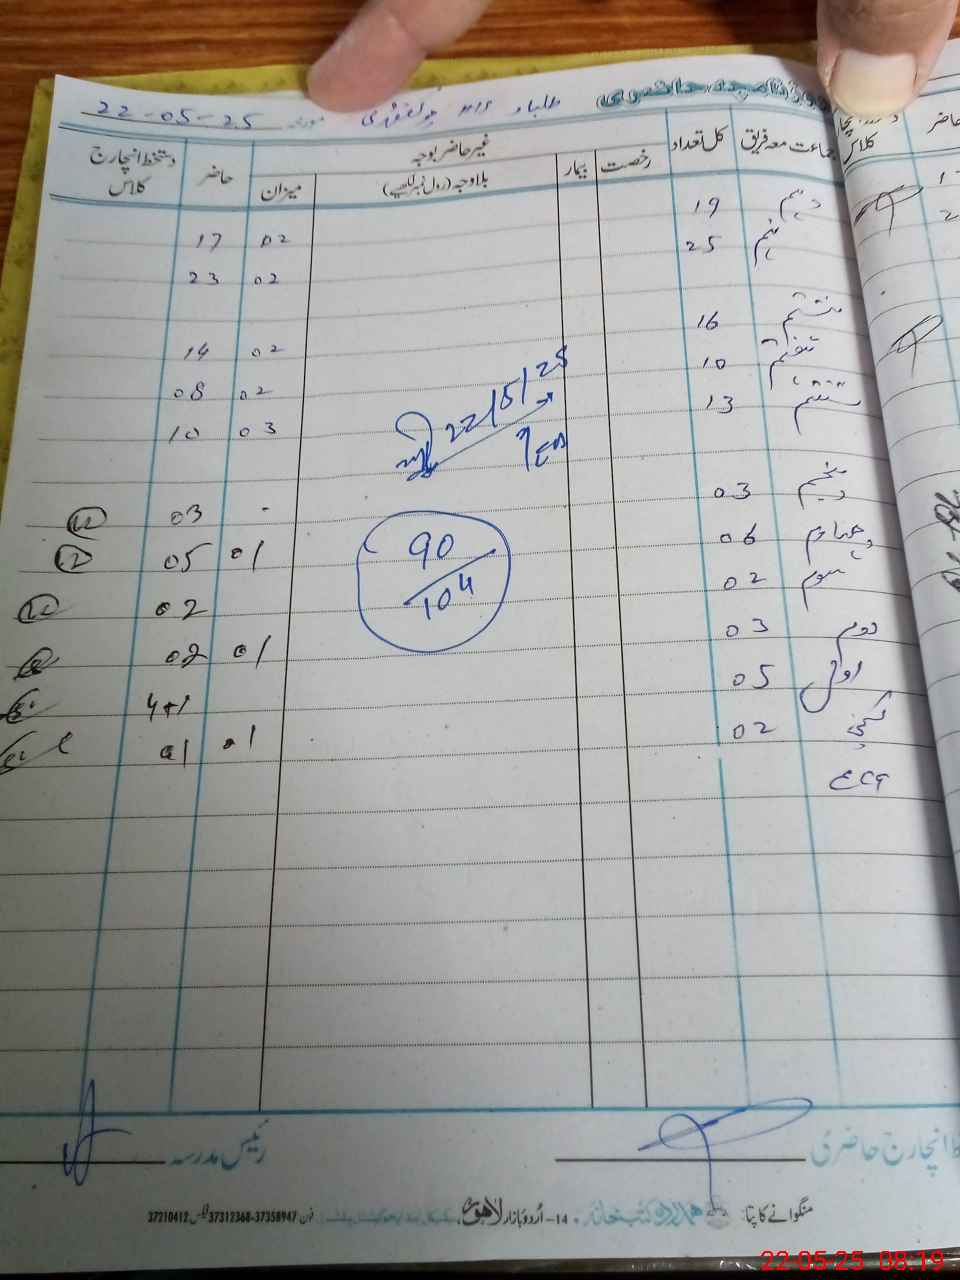 روزنامچہ حاضری طلباء 22-05-25
جماعت معہ فریق کل تعداد رخصت بیمار غیر حاضر بوجہ بلاوجہ (رول نمبر لکھیے) میزان حاضر دستخط انچارج کلاس
دہم 19 02 17
نہم 25 02 23
ہشتم 16 02 14
ہفتم 10 02 08
ششم 13 03 10
پنجم 03 - 03
چہارم 06 01 05
سوم 02 02
دوم 03 01 02
اول 05 4+1
کچی 02 01 01
ECE
22/5/25
AEO
90
104
دستخط انچارج حاضری
رئیس مدرسہ
منگوانے کا پتا: ہمدرد کتب خانہ
14- اُردو بازار لاہور
فون 37358947-37312368 فیکس 37210412
کلاس
حاضر
22-05-25 08:19